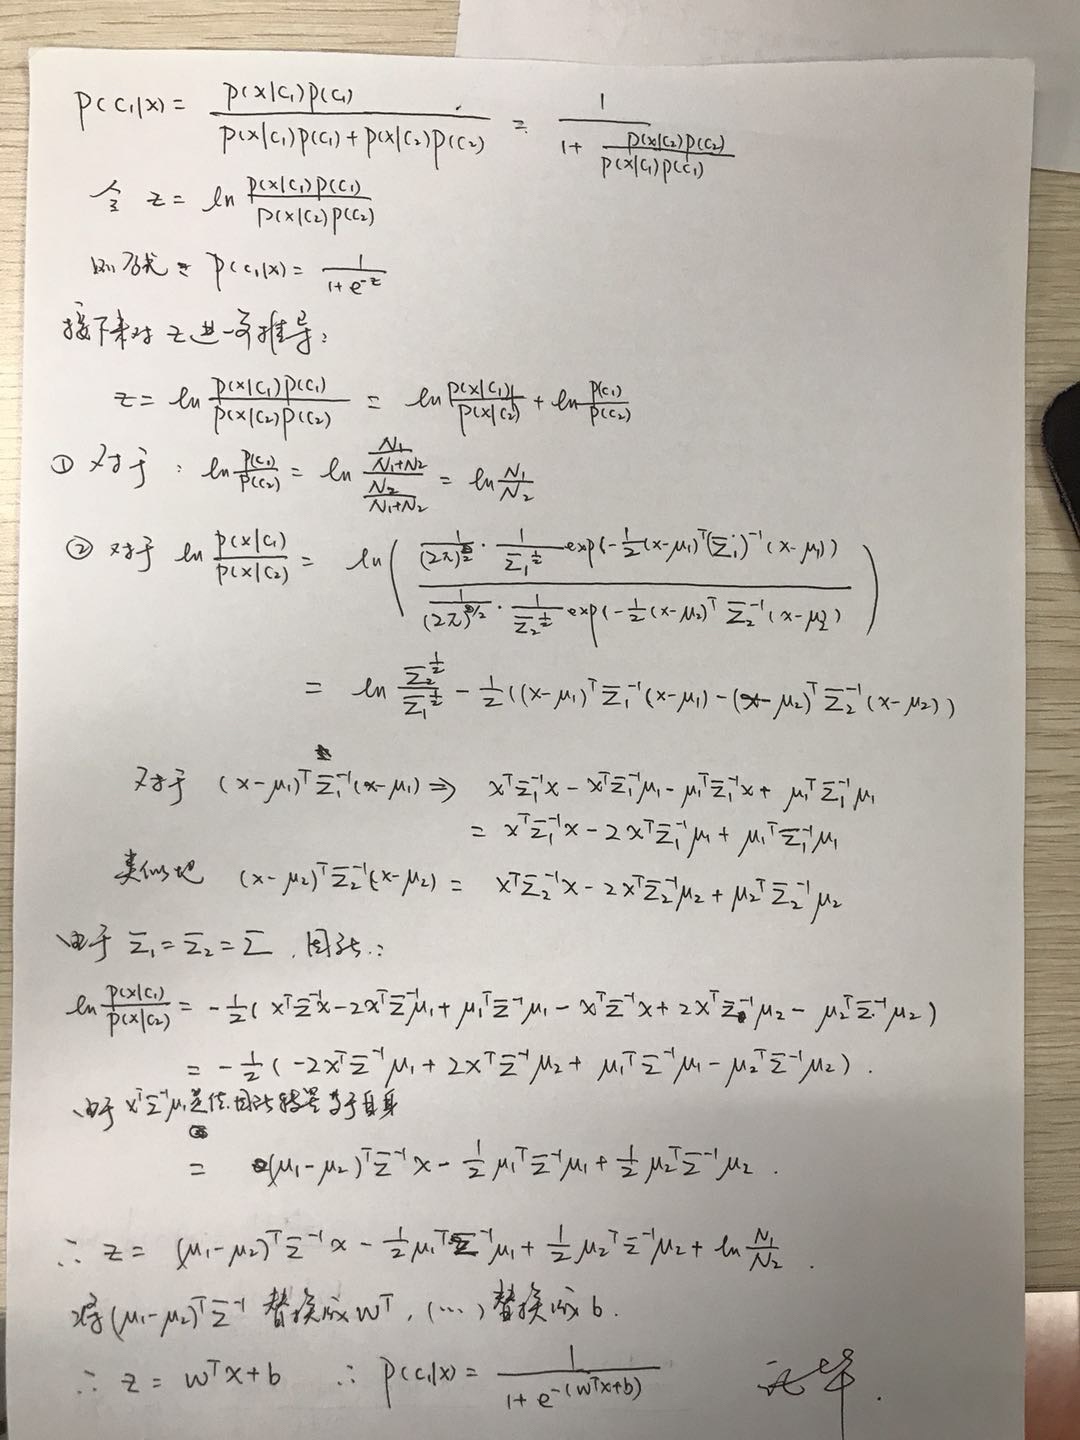 P(C₁|x) = \frac{P(x|C₁)P(C₁)}{P(x|C₁)P(C₁)+P(x|C₂)P(C₂)} = \frac{1}{1+\frac{P(x|C₂)P(C₂)}{P(x|C₁)P(C₁)}}
令 z = ln \frac{P(x|C₁)P(C₁)}{P(x|C₂)P(C₂)}
则 P(C₁|x) = \frac{1}{1+e^{-z}}
接下来对 z 进一步推导:
z = ln \frac{P(x|C₁)P(C₁)}{P(x|C₂)P(C₂)} = ln \frac{P(x|C₁)}{P(x|C₂)} + ln \frac{P(C₁)}{P(C₂)}
① 对于: ln \frac{P(C₁)}{P(C₂)} = ln \frac{\frac{N₁}{N₁+N₂}}{\frac{N₂}{N₁+N₂}} = ln \frac{N₁}{N₂}
② 对于 ln \frac{P(x|C₁)}{P(x|C₂)} = ln ( \frac{\frac{1}{(2π)^{D/2}}·\frac{1}{Σ₁^{1/2}} exp(-\frac{1}{2}(x-μ₁)^T(Σ₁)^{-1}(x-μ₁))}{\frac{1}{(2π)^{D/2}}·\frac{1}{Σ₂^{1/2}} exp(-\frac{1}{2}(x-μ₂)^T Σ₂^{-1}(x-μ₂))} )
= ln \frac{Σ₂^{1/2}}{Σ₁^{1/2}} - \frac{1}{2}((x-μ₁)^T Σ₁^{-1}(x-μ₁) - (x-μ₂)^T Σ₂^{-1}(x-μ₂))
对于 (x-μ₁)^T Σ₁^{-1}(x-μ₁) ⇒ x^T Σ₁^{-1} x - x^T Σ₁^{-1} μ₁ - μ₁^T Σ₁^{-1} x + μ₁^T Σ₁^{-1} μ₁
= x^T Σ₁^{-1} x - 2x^T Σ₁^{-1} μ₁ + μ₁^T Σ₁^{-1} μ₁
类似地 (x-μ₂)^T Σ₂^{-1}(x-μ₂) = x^T Σ₂^{-1} x - 2x^T Σ₂^{-1} μ₂ + μ₂^T Σ₂^{-1} μ₂
由于 Σ₁ = Σ₂ = Σ, 因此:
ln \frac{P(x|C₁)}{P(x|C₂)} = -\frac{1}{2}( x^T Σ^{-1} x - 2x^T Σ^{-1} μ₁ + μ₁^T Σ^{-1} μ₁ - x^T Σ^{-1} x + 2x^T Σ^{-1} μ₂ - μ₂^T Σ^{-1} μ₂ )
= -\frac{1}{2}( -2x^T Σ^{-1} μ₁ + 2x^T Σ^{-1} μ₂ + μ₁^T Σ^{-1} μ₁ - μ₂^T Σ^{-1} μ₂ ).
由于 x^T Σ^{-1} μ₁ 是 因此转置等于自身
= (μ₁-μ₂)^T Σ^{-1} x - \frac{1}{2} μ₁^T Σ^{-1} μ₁ + \frac{1}{2} μ₂^T Σ^{-1} μ₂ .
∴ z = (μ₁-μ₂)^T Σ^{-1} x - \frac{1}{2} μ₁^T Σ^{-1} μ₁ + \frac{1}{2} μ₂^T Σ^{-1} μ₂ + ln \frac{N₁}{N₂} .
将 (μ₁-μ₂)^T Σ^{-1} 替换成 w^T, (…) 替换成 b.
∴ z = w^T x + b ∴ P(C₁|x) = \frac{1}{1+e^{-(w^T x+b)}}